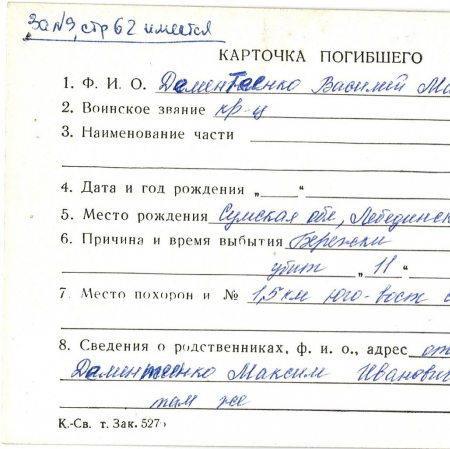 Зап 9, стр 62 имеется
КАРТОЧКА ПОГИБШЕГО
1. Ф. И. О. Дементеенко Василий Ма
2. Воинское звание кр-ц
3. Наименование части
4. Дата и год рождения „ “
5. Место рождения Сумская обл, Лебединск
6. Причина и время выбытия Бережки
убит „ 11 “
7. Место похорон и № 1,5 км юго-вост
8. Сведения о родственниках, ф. и. о., адрес от
Дементеенко Максим Иванович
там же
К.-Св. т. Зак. 527